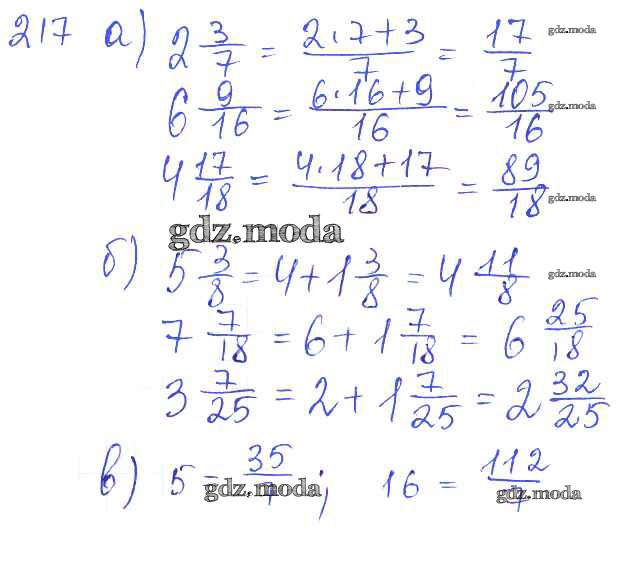 217 а) 2 3/7 = (2·7+3)/7 = 17/7 gdz.moda
6 9/16 = (6·16+9)/16 = 105/16 gdz.moda
4 17/18 = (4·18+17)/18 = 89/18 gdz.moda
gdz.moda
б) 5 3/8 = 4+1 3/8 = 4 11/8 gdz.moda
7 7/18 = 6+1 7/18 = 6 25/18
3 7/25 = 2+1 7/25 = 2 32/25
в) 5 = 35/7 ; 16 = 112/7
gdz.moda gdz.moda